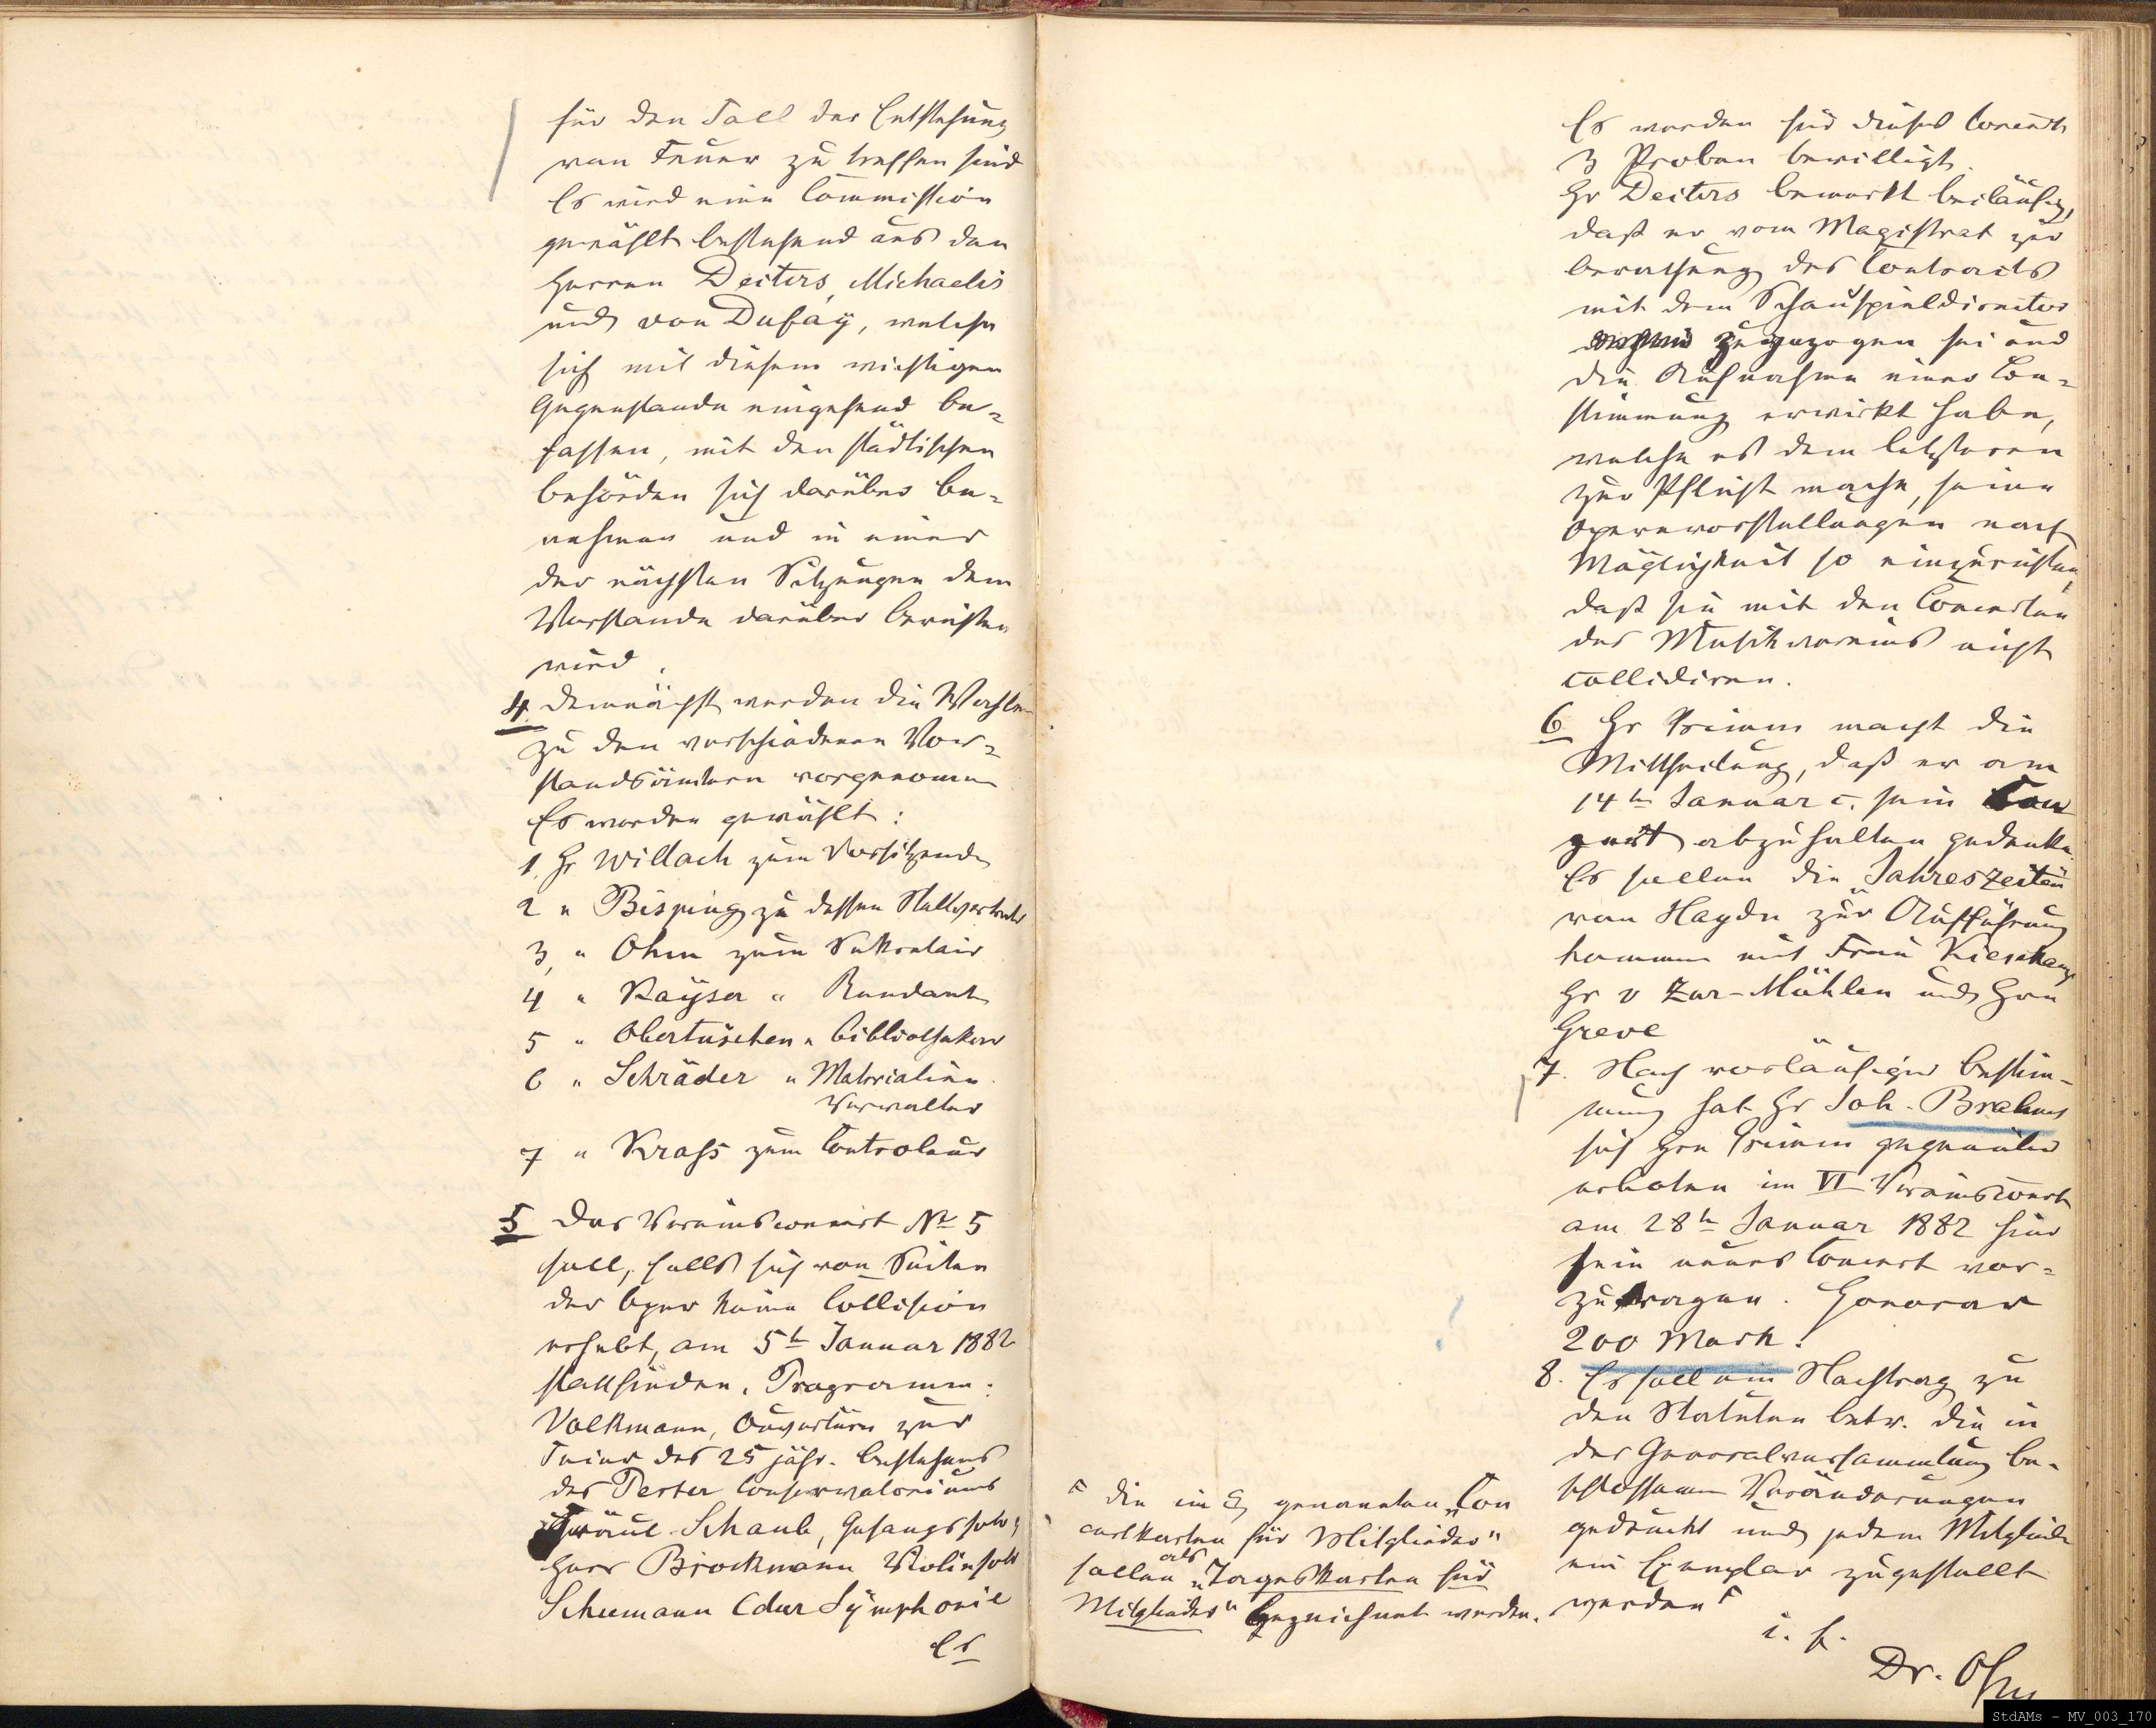 für den Fall der Entstehung
von Feuer zu treffen sind
Es wird eine Commission
gewählt bestehend aus den
Herren Deiters, Michaelis
und von Dufaÿ, welche
sich mit diesem wichtigen
Gegenstande eingehend be=
fassen, mit den städtischen
Behörden sich darüber be=
nehmen und in einer
der nächsten Sitzungen dem
Vorstande darüber berichten
wird.
4. Demnächst werden die Wahlen
zu den verschiedenen Vor=
standsämtern vorgenommen
Es werden gewählt:
1. Hr Willach zum Vorsitzenden
2 " Bisping zu dessen Stellvertreter
3, " Ohm zum Sekretair
4 " Kaÿser " Rendant
5 " Obertüschen " Bibliothekar
6 " Schräder " Materialien
Verwalter
7 " Krass zum Controleur
5 Das Vereinsconcert No 5
soll, falls sich von Seiten
der Oper keine Collision
erhebt, am 5ten Januar 1882
stattfinden. Programm:
Volkmann, Ouverture zur
Feier des 25 jähr. Bestehens
des Pester Conservatoriums
Fräul. Schaub, Gesangssolo,
Herr Brockmann Violinsolo
Schumann Cdur Sÿmphonie
Es
Es werden für dieses Concert
3 Proben bewilligt.
Hr Deiters bemerkt beiläufig,
daß er vom Magistrat zur
Berathung des Contracts
mit dem Schauspieldirector
zugezogen sei und
die Aufnahme einer Be=
stimmung erwirkt habe,
welche es dem letzteren
zur Pflicht mache, seine
Opernvorstellungen nach
Möglichkeit so einzurichten,
daß sie mit den Concerten
des Musikvereins nicht
collidiren.
6 Hr Grimm macht die
Mittheilung, daß er am
14ten Januar c. sein Con
zert abzuhalten gedenke.
Es sollen die Jahreszeiten
von Haydn zur Aufführung
kommen mit Frau Kieschang
Hr v Zur-Mühlen und Hrn
Greve
7. Nach vorläufiger Bestim-
mung hat Hr Joh. Brahms
sich Hrn Grimm gegenüber
erboten im VI Vereinsconcert
am 28ten Januar 1882 hier
sein neues Concert vor=
zutragen. Honorar
200 Mark.
8. Es soll ein Nachtrag zu
den Statuten betr. die in
der Generalversammlung be-
schlossenen Veränderungen
gedruckt und jedem Mitgliede
ein Exemplar zugestellt
werden F
i. f.
Dr. Ohm
F die im § genannten „Con
certkarten für Mitglieder"
sollen als „Tageskarten für
Mitglieder" bezeichnet werden.
StdAMs - MV_003_170